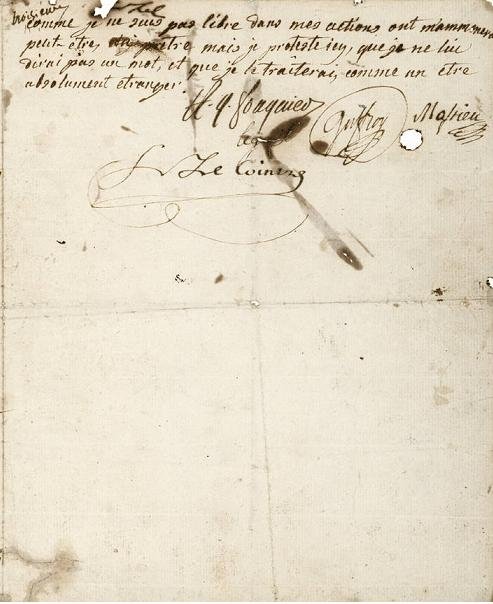 comme je ne suis pas libre dans mes actions ont m'ammenera
peut-etre, un pretre mais je proteste icy, que je ne lui
dirai pas un mot, et que je le traiterai, comme un etre
absolument etranger.
A. q. fouquier
Guffroy
Massieu
Le Cointre